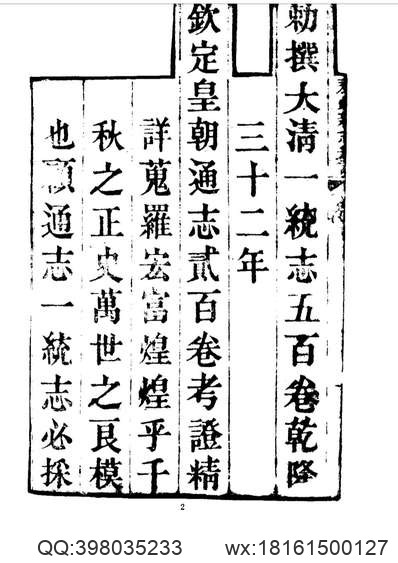 勅撰大清一統志五百卷乾隆
三十二年
欽定皇朝通志貳百卷考證精
詳蒐羅宏富煌煌乎千
秋之正史萬世之良模
也顧通志一統志必採
2
QQ:398035233 wx:18161500127